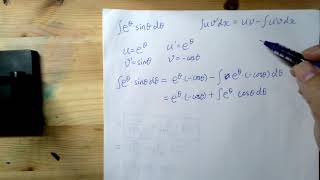 ∫e^θ sinθ dθ    ∫uv'dx = uv - ∫u'v dx
u = e^θ    u' = e^θ
v' = sinθ    v = -cosθ
∫e^θ·sinθ dθ = e^θ·(-cosθ) - ∫e^θ·(-cosθ) dθ
= e^θ(-cosθ) + ∫e^θ·cosθ dθ